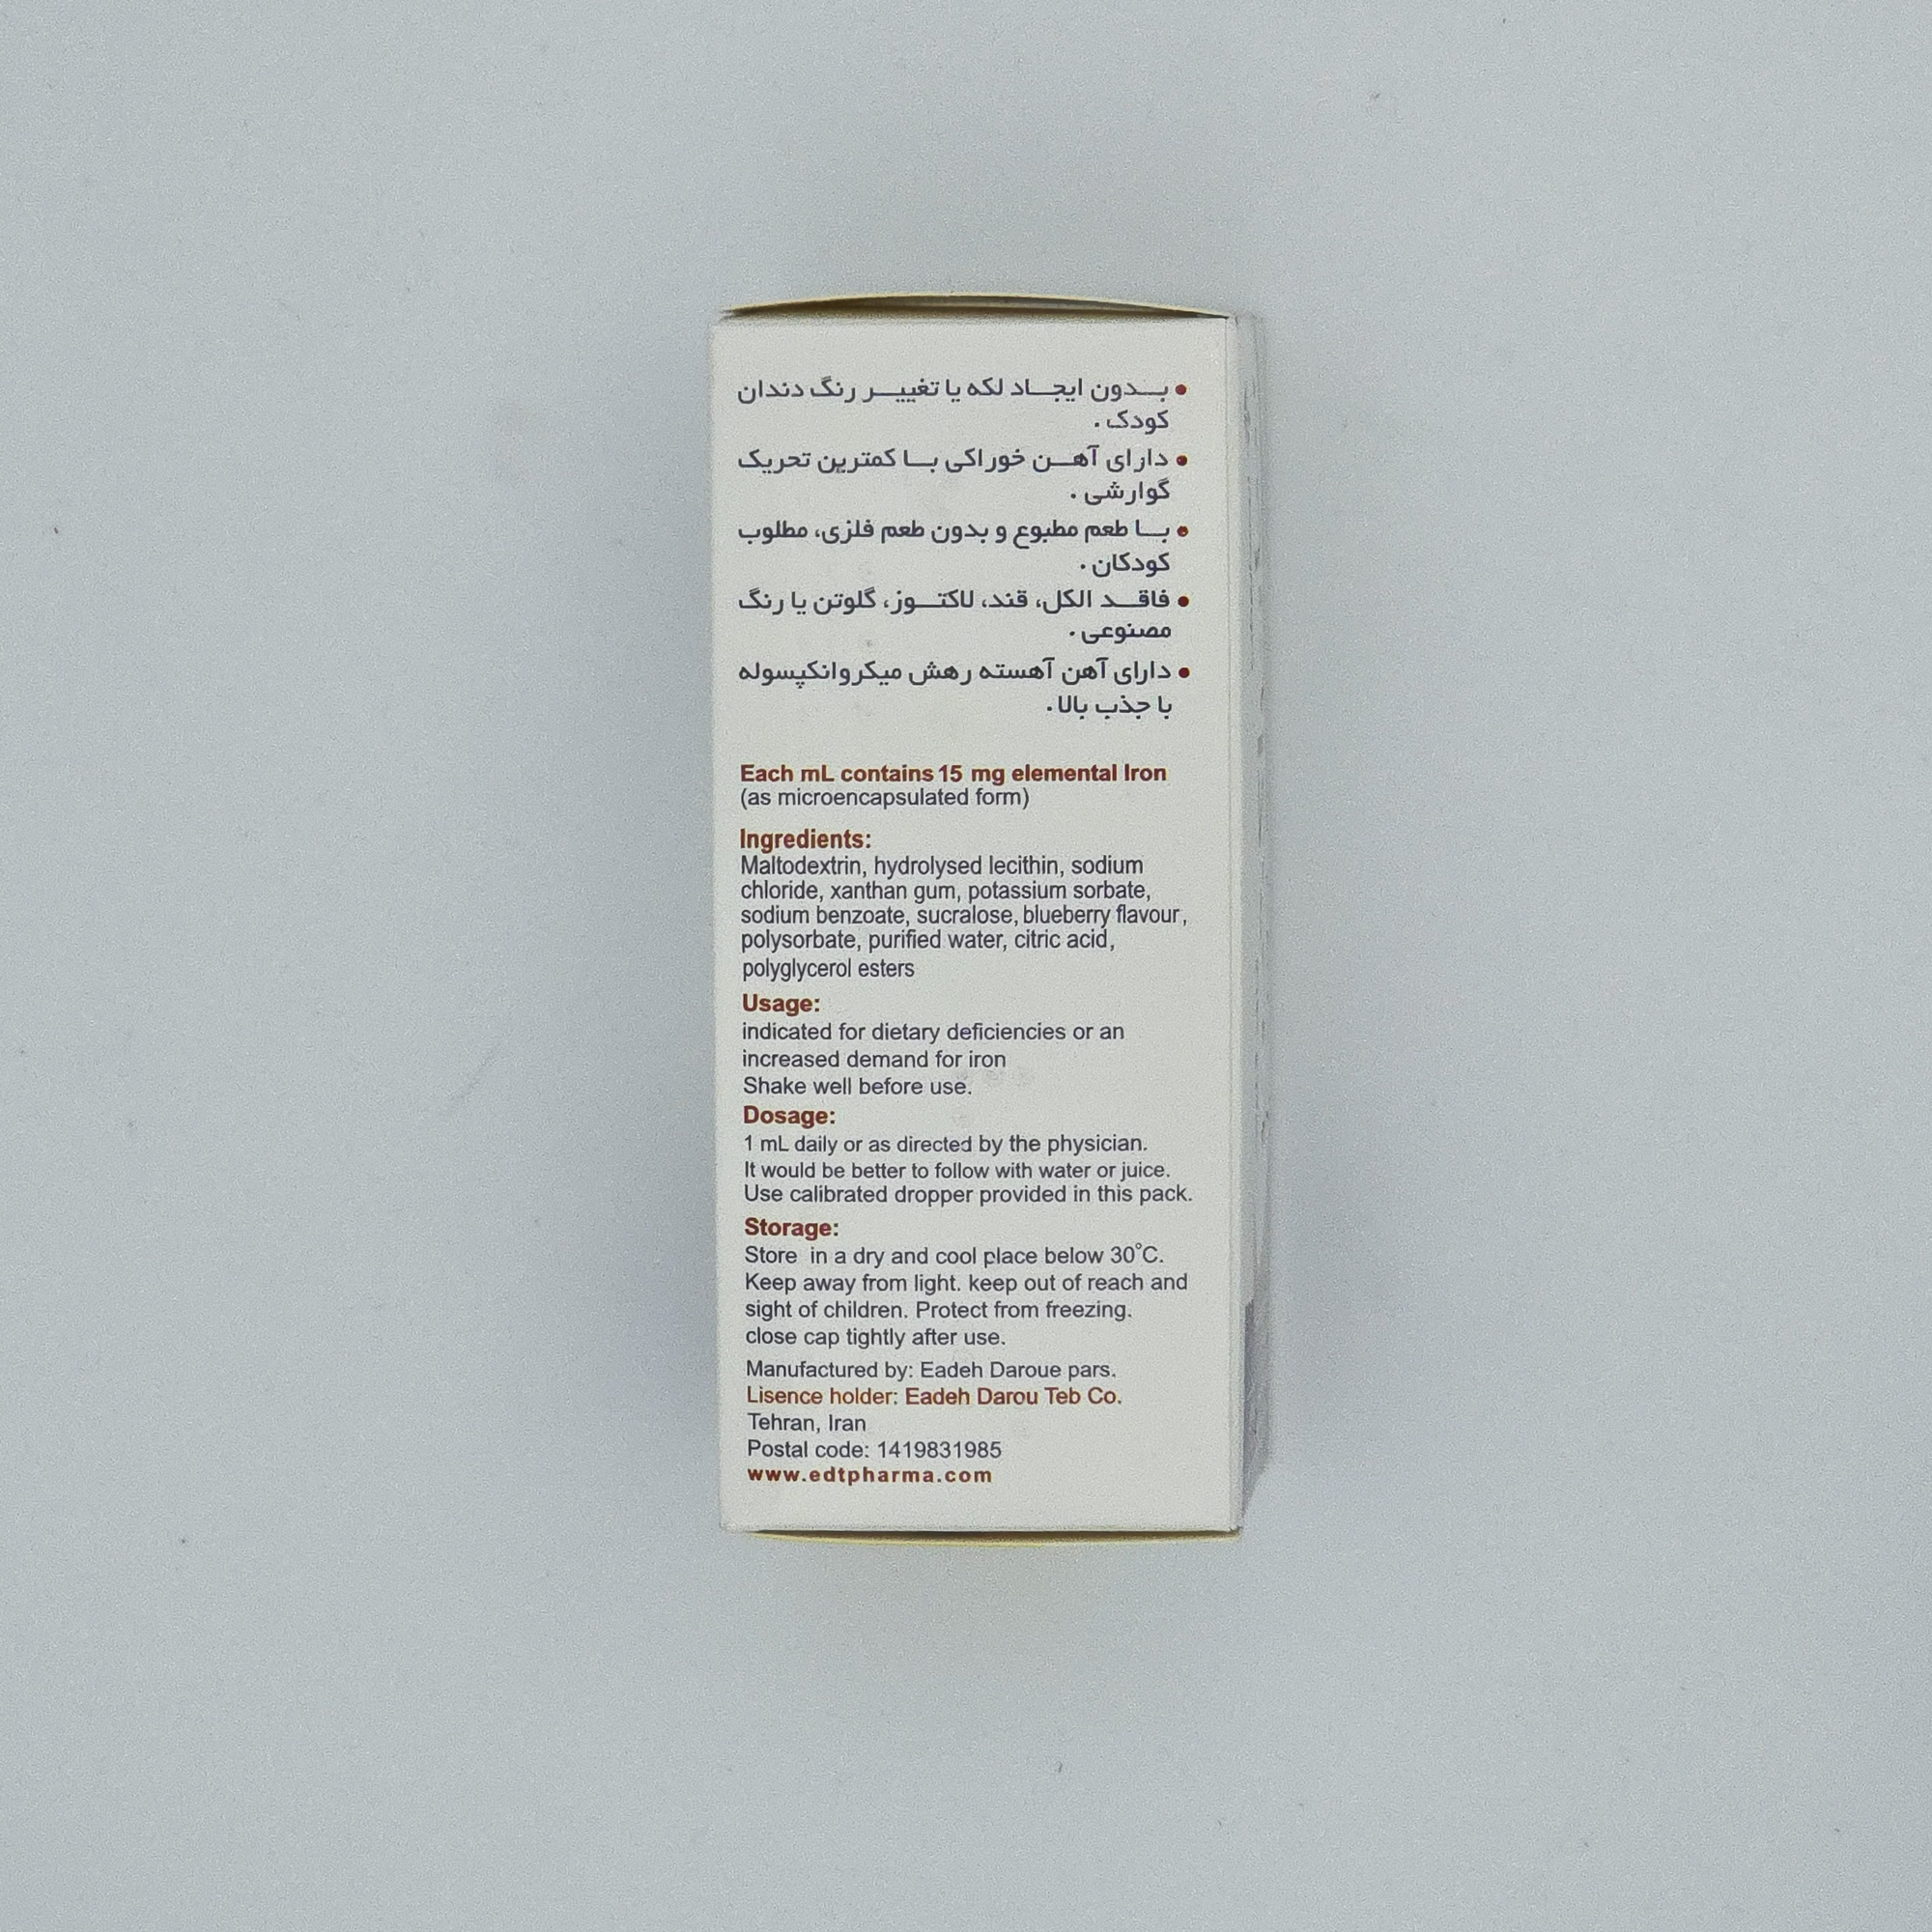 • بـــدون ایجـــاد لکه یا تغییـــر رنگ دندان
کودک .
• دارای آهـــن خوراکی بـــا کمترین تحریک
گوارشی .
• بـــا طعم مطبوع و بدون طعم فلزی، مطلوب
کودکان .
• فاقـــد الکل، قند، لاکتـــوز، گلوتن یا رنگ
مصنوعی .
• دارای آهن آهسته رهش میکروانکپسوله
با جذب بالا.
Each mL contains 15 mg elemental Iron
(as microencapsulated form)
Ingredients:
Maltodextrin, hydrolysed lecithin, sodium
chloride, xanthan gum, potassium sorbate,
sodium benzoate, sucralose, blueberry flavour,
polysorbate, purified water, citric acid,
polyglycerol esters
Usage:
indicated for dietary deficiencies or an
increased demand for iron
Shake well before use.
Dosage:
1 mL daily or as directed by the physician.
It would be better to follow with water or juice.
Use calibrated dropper provided in this pack.
Storage:
Store in a dry and cool place below 30°C.
Keep away from light. keep out of reach and
sight of children. Protect from freezing.
close cap tightly after use.
Manufactured by: Eadeh Daroue pars.
Lisence holder: Eadeh Darou Teb Co.
Tehran, Iran
Postal code: 1419831985
www.edtpharma.com